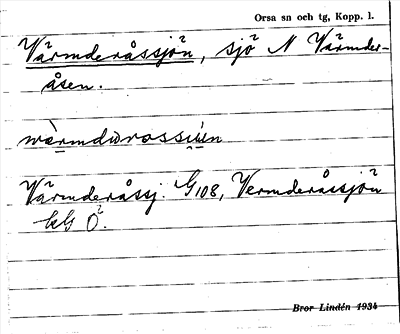 Orsa sn och tg, Kopp. l.
Värmderåssjön, sjö N Värmder-
åsen.
Värmderåssj. G108, Vermderåssjön
Bror Lindén 1934